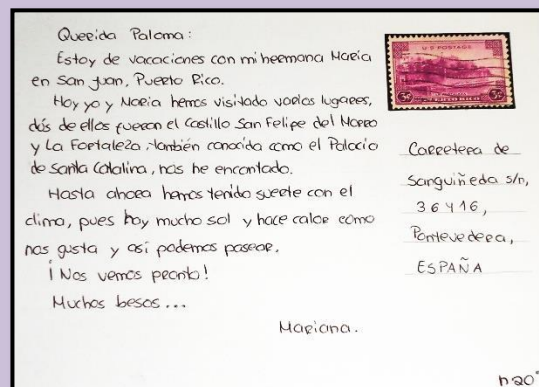 Querida Paloma:
Estoy de vacaciones con mi hermana María
en San Juan, Puerto Rico.
Hoy yo y María hemos visitado varios lugares,
dos de ellos fueron el Castillo San Felipe del Morro
y La Fortaleza, también conocida como el Palacio
de Santa Catalina, nos he encantado.
Hasta ahora hemos tenido suerte con el
clima, pues hay mucho sol y hace calor como
nos gusta y así podemos pasear.
¡Nos vemos pronto!
Muchos besos...
Mariana.
U·S·POSTAGE
3¢ 3¢
PUERTO RICO
Carretera de
Sanguiñeda s/n,
36416,
Pontevedra,
ESPAÑA